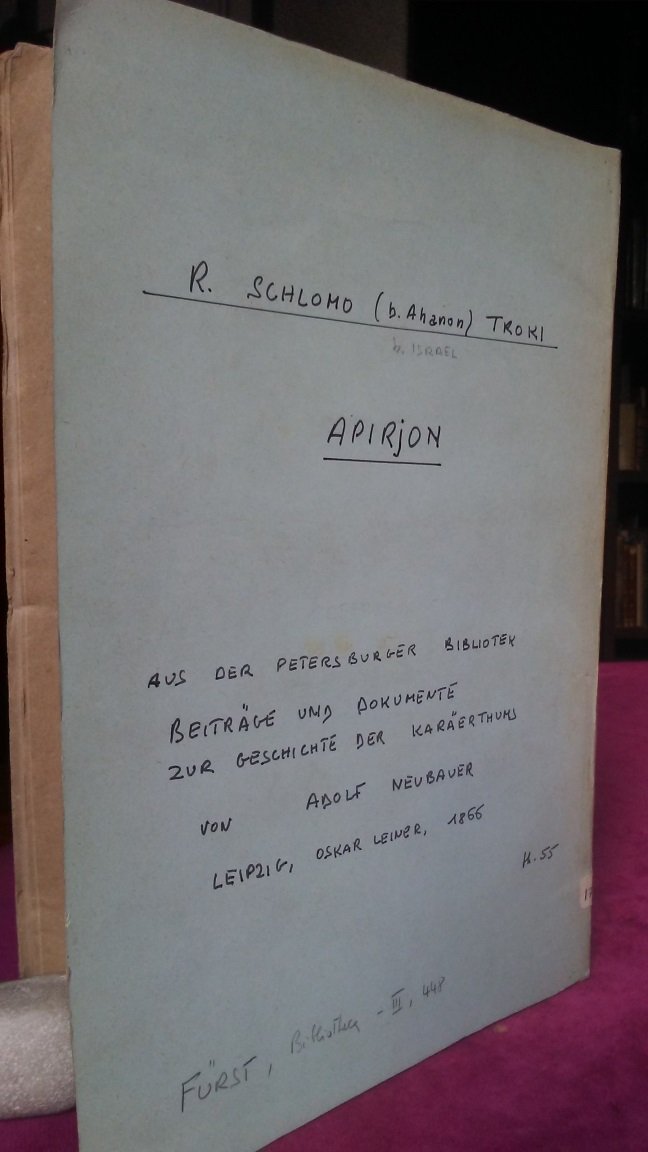 R. SCHLOMO (b. Ahanon) TROKI
b. ISRAEL
APIRjON
AUS DER PETERSBURGER BIBLIOTEK
BEITRÄGE UND DOKUMENTE
ZUR GESCHICHTE DER KARÄERTHUMS
VON ADOLF NEUBAUER
LEIPZIG, OSKAR LEINER, 1866
K.55
17
FÜRST, Bibliotheca - III, 448